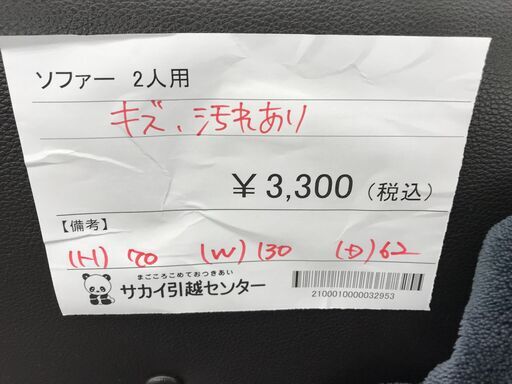 ソファー 2人用
キズ、汚れあり
￥3,300（税込）
【備考】
(H) 70 (W) 130 (D) 62
まごころこめておつきあい
サカイ引越センター
2100010000032953